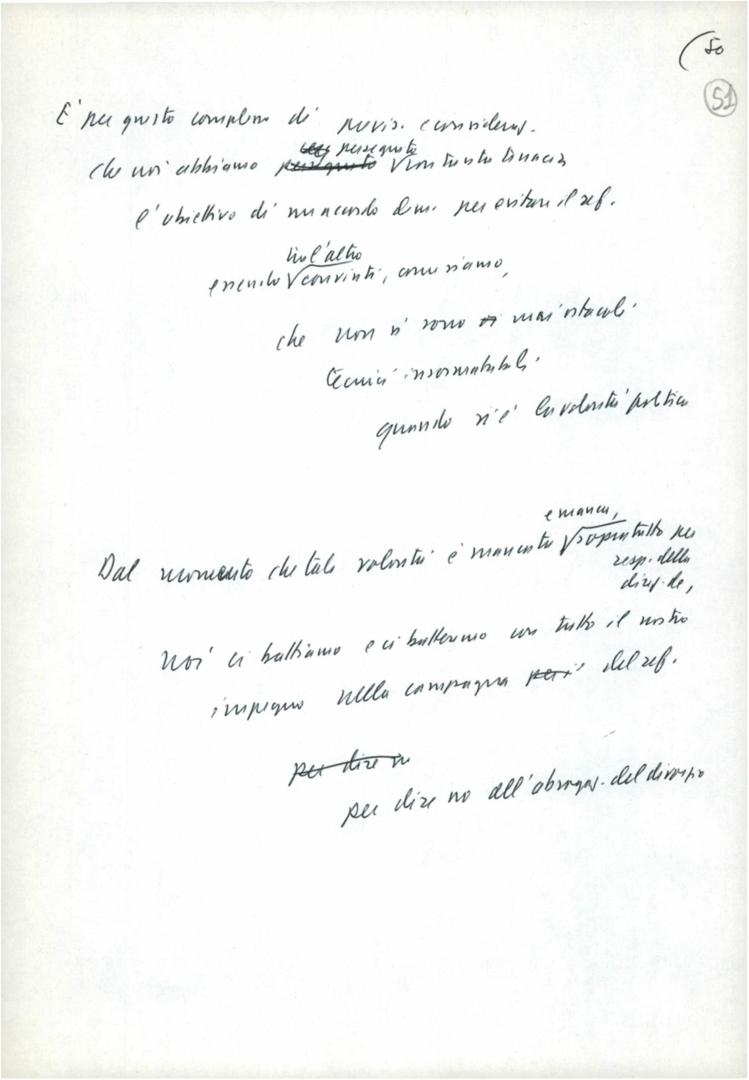 50
51
E' per questo complesso di consideraz.
che noi abbiamo perseguito perseguito con tanta tenacia
l'obiettivo di un accordo per evitare il ref.
tral'altro
essendo convinti, come siamo,
che non vi sono mai ostacoli
tecnici insormontabili
quando vi è la volontà politica
e manca,
Dal momento che tale volontà è mancata soprattutto per
resp. della
direz. dc,
noi ci battiamo e ci batteremo con tutto il nostro
impegno nella campagna per i del ref.
per dire no
per dire no all'abrogaz. del divorzio